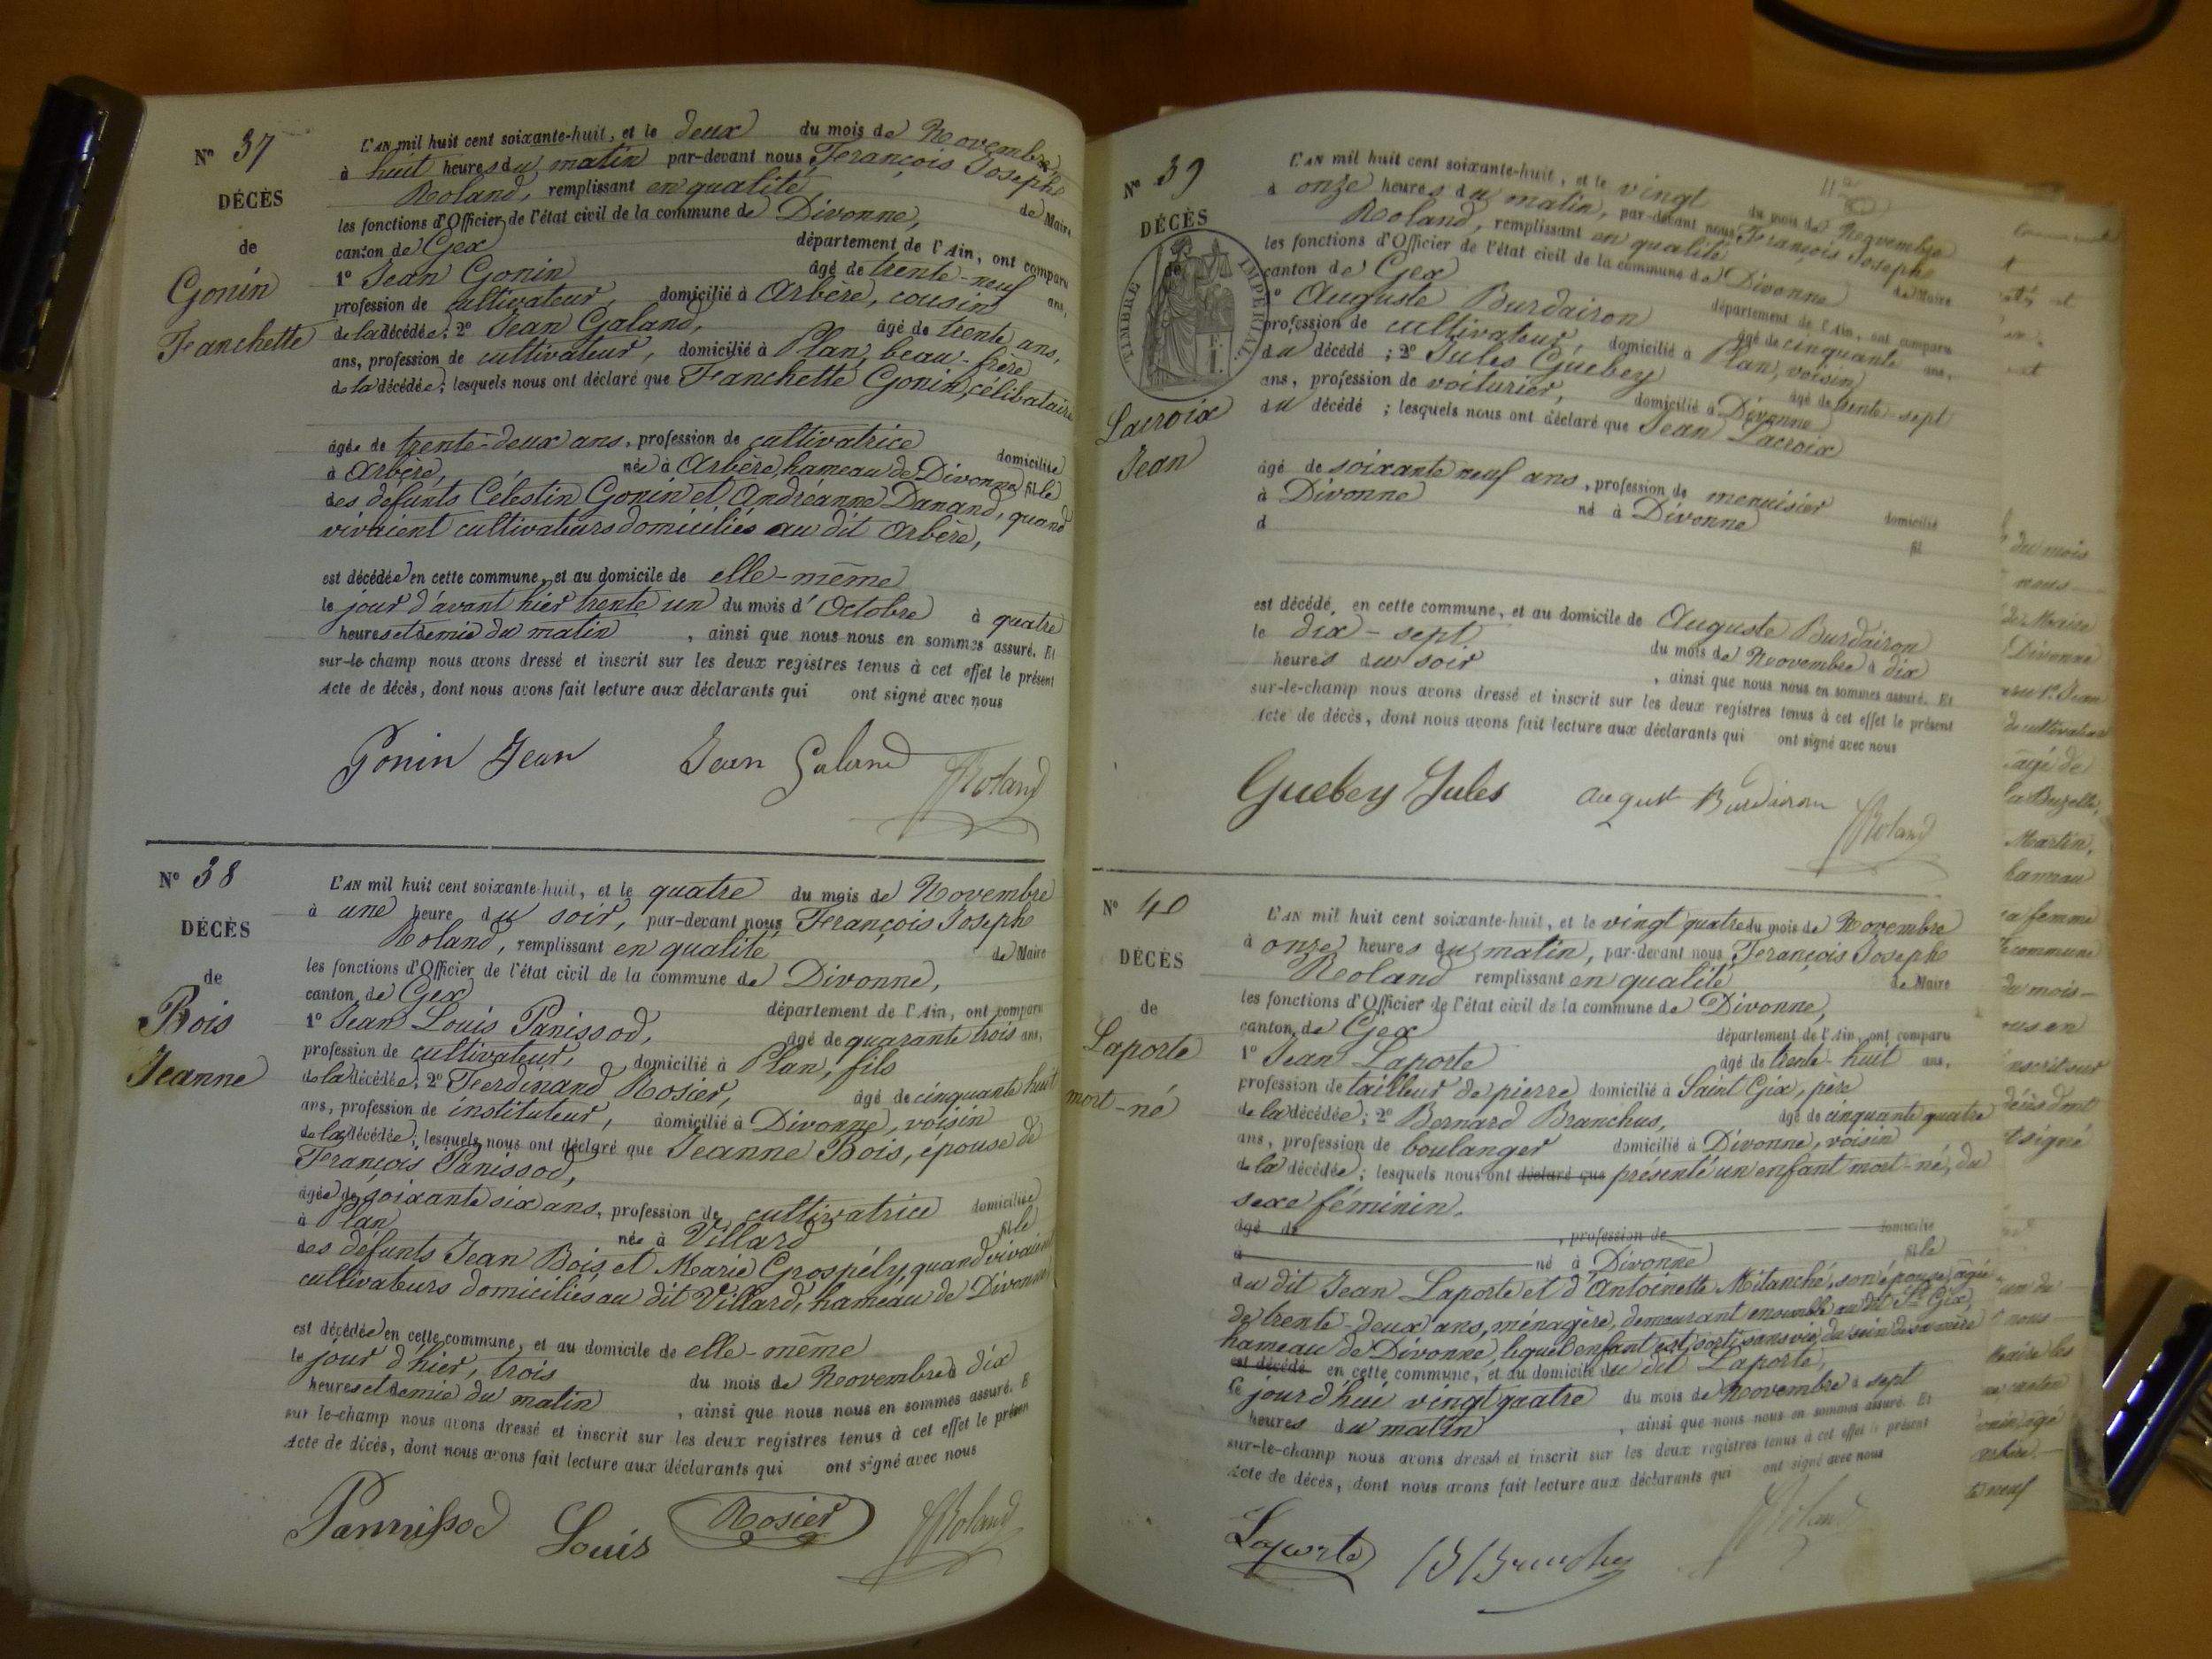 N° 37
DÉCÈS
de
Gonin
Fanchette
L'AN mil huit cent soixante-huit, et le deux du mois de Novembre,
à huit heures du matin par-devant nous, François Josephe
Roland, remplissant en qualité de Maire
les fonctions d'Officier de l'état civil de la commune de Divonne,
canton de Gex département de l'Ain, ont comparu
1° Jean Gonin âgé de trente-neuf ans,
profession de cultivateur, domicilié à Arbère, cousin
de la décédée; 2° Jean Galand, âgé de trente ans,
ans, profession de cultivateur, domicilié à Plan, beau-frère
de la décédée; lesquels nous ont déclaré que Fanchette Gonin, célibataire
âgée de trente-deux ans, profession de cultivatrice domiciliée
à Arbère, née à Arbère, hameau de Divonne fille
des défunts Célestin Gonin et Andréanne Danand, quand
vivaient cultivateurs domiciliés au dit Arbère,
est décédée en cette commune, et au domicile de elle-même
le jour d'avant hier trente un du mois d'Octobre à quatre
heures et demie du matin, ainsi que nous nous en sommes assuré. Et
sur-le champ nous avons dressé et inscrit sur les deux registres tenus à cet effet le présent
Acte de décès, dont nous avons fait lecture aux déclarants qui ont signé avec nous
Gonin Jean Jean Galand Roland
N° 38
DÉCÈS
de
Bois
Jeanne
L'AN mil huit cent soixante-huit, et le quatre du mois de Novembre
à une heure du soir, par-devant nous François Josephe
Roland, remplissant en qualité de Maire
les fonctions d'Officier de l'état civil de la commune de Divonne,
canton de Gex département de l'Ain, ont comparu
1° Jean Louis Panissod, âgé de quarante trois ans,
profession de cultivateur, domicilié à Plan, fils
de la décédée; 2° Ferdinand Rosier, âgé de cinquante huit
ans, profession de instituteur, domicilié à Divonne, voisin
de la décédée; lesquels nous ont déclaré que Jeanne Bois, épouse de
François Panissod,
âgée de soixante six ans, profession de cultivatrice domiciliée
à Plan née à Villard fille
des défunts Jean Bois et Marie Grospély, quand vivaient
cultivateurs domiciliés au dit Villard, hameau de Divonne
est décédée en cette commune, et au domicile de elle-même
le jour d'hier, trois du mois de Novembre à dix
heures et demie du matin, ainsi que nous nous en sommes assuré. E
sur le-champ nous avons dressé et inscrit sur les deux registres tenus à cet effet le présen
Acte de décès, dont nous avons fait lecture aux déclarants qui ont signé avec nous
Pannissod Louis Rosier Roland
N° 39
DÉCÈS
TIMBRE IMPÉRIAL
Lacroix
Jean
L'AN mil huit cent soixante-huit, et le vingt du mois de Novembre
à onze heures du matin, par-devant nous François Josephe
Roland, remplissant en qualité de Maire
les fonctions d'Officier de l'état civil de la commune de Divonne
canton de Gex département de l'Ain, ont comparu
1° Auguste Burdairon âgé de cinquante ans,
profession de cultivateur, domicilié à Plan, voisin
du décédé; 2° Jules Guebey âgé de trente-sept
ans, profession de voiturier, domicilié à Divonne
du décédé; lesquels nous ont déclaré que Jean Lacroix
âgé de soixante neuf ans, profession de menuisier domicilié
à Divonne né à Divonne fil
d
est décédé en cette commune, et au domicile de Auguste Burdairon
le dix-sept du mois de Novembre à dix
heures du soir, ainsi que nous nous en sommes assuré. Et
sur-le-champ nous avons dressé et inscrit sur les deux registres tenus à cet effet le présent
Acte de décès, dont nous avons fait lecture aux déclarants qui ont signé avec nous
Guebey Jules august Burdairon Roland
N° 40
DÉCÈS
de
Laporte
mort-né
L'AN mil huit cent soixante-huit, et le vingt quatre du mois de Novembre
à onze heures du matin, par-devant nous François Josephe
Roland remplissant en qualité de Maire
les fonctions d'Officier de l'état civil de la commune de Divonne,
canton de Gex département de l'Ain, ont comparu
1° Jean Laporte âgé de trente-huit ans,
profession de tailleur de pierre domicilié à Saint Gix, père
de la décédée; 2° Bernard Branchus, âgé de cinquante quatre
ans, profession de boulanger domicilié à Divonne, voisin
de la décédée; lesquels nous ont déclaré que présenté un enfant mort-né, du
sexe féminin.
âgé de, profession de domicilié
à né à Divonne fille
du dit Jean Laporte et d'Antoinette Mitanché, son épouse, agée
de trente-deux ans, ménagère, demeurant ensemble au dit St Gix,
hameau de Divonne, lequel enfant est sorti sans vie du sein de sa mère
est décédé en cette commune, et au domicile du dit Laporte,
le jourd'hui vingt quatre du mois de Novembre à sept
heures du matin, ainsi que nous nous en sommes assuré. Et
sur-le-champ nous avons dressé et inscrit sur les deux registres tenus à cet effet le présent
Acte de décès, dont nous avons fait lecture aux déclarants qui ont signé avec nous
Laporte Roland
du mois
nous
de Maire
Divonne
de cultivateur
âgé de
Martin,
hameau
femme
commune
du mois
inscrit sur
signé